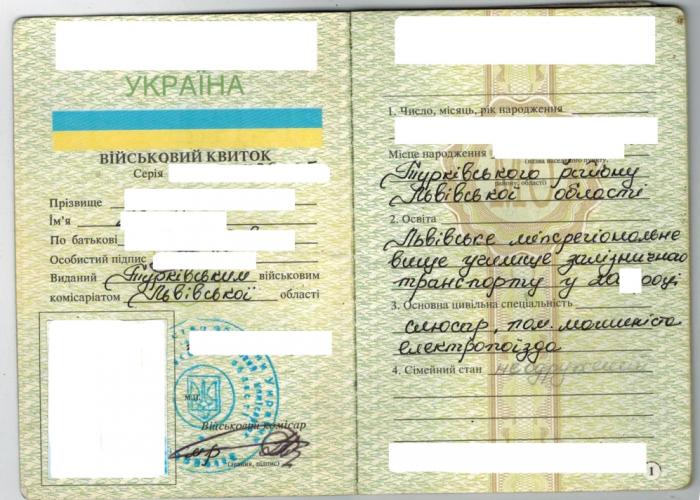 УКРАЇНА
ВІЙСЬКОВИЙ КВИТОК
Серія
Прізвище
Ім'я
По батькові
Особистий підпис
Виданий Турківським військовим
комісаріатом Львівської області
м.п.
Військовий комісар
(звання, підпис)
1. Число, місяць, рік народження
Місце народження
(назва населеного пункту,
Турківського району
району, області)
Львівської області
2. Освіта
Львівське міжрегіональне
вище училище залізничного
транспорту у 20 році
3. Основна цивільна спеціальність
слюсар, пом. машиніста
електропоїзда
4. Сімейний стан неодружений
1